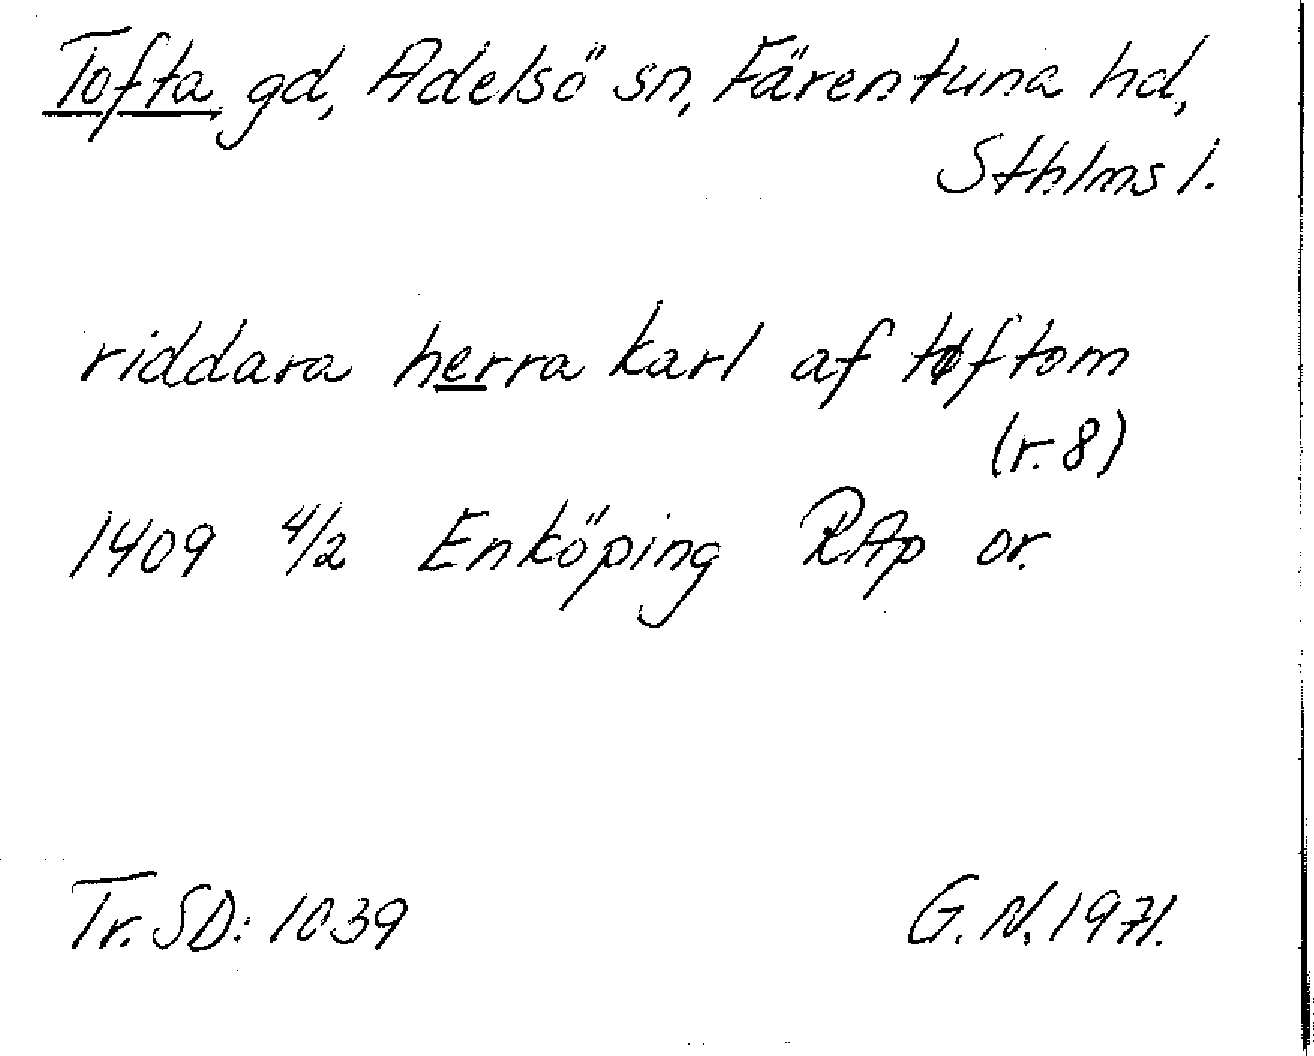 Tofta gd, Adelsö sn, Färentuna hd,
Sthlms l.
riddara herra karl af tøftom
(r. 8)
1409 4/2 Enköping RAp or.
Tr. SD: 1039
G. N. 1971.